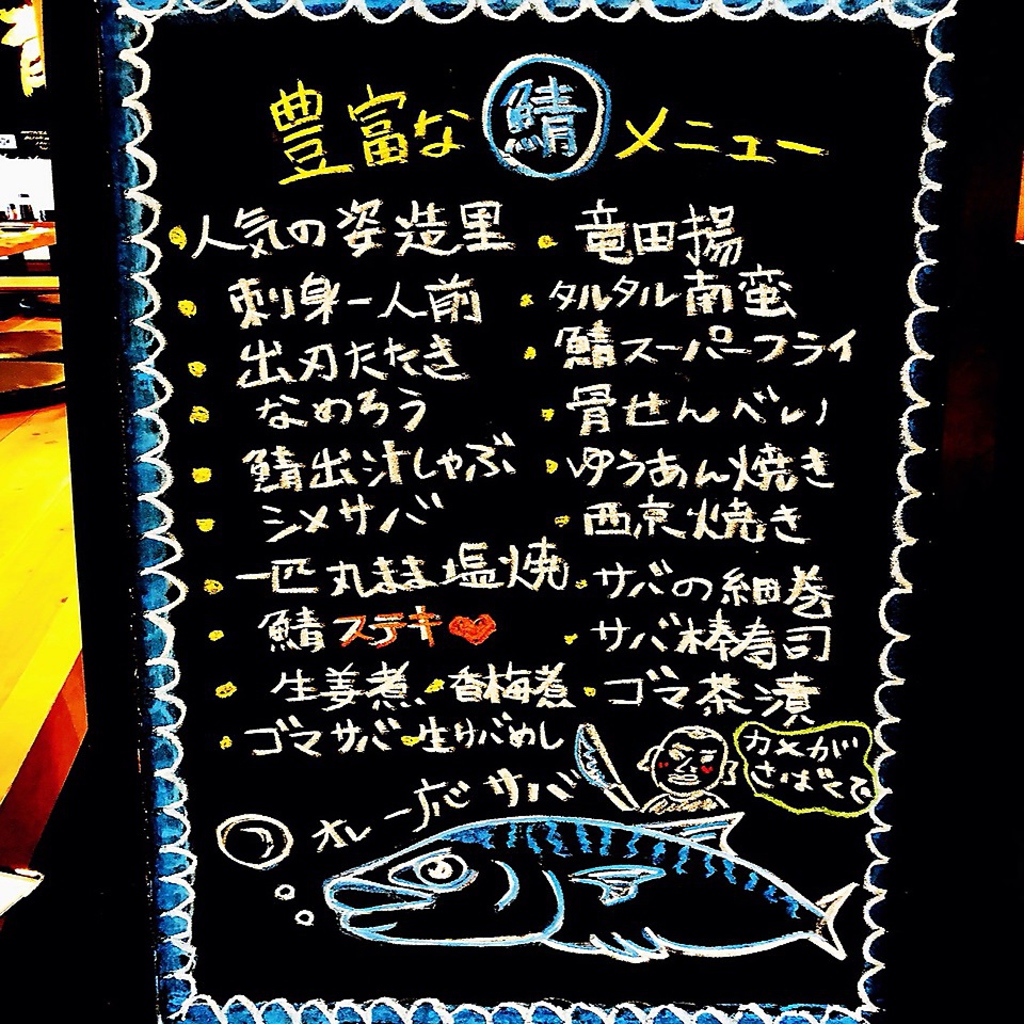 豊富な 鯖 メニュー
・人気の姿造里
・刺身一人前
・出刃たたき
・なめろう
・鯖出汁しゃぶ
・シメサバ
・一匹丸まま塩焼
・鯖ステキ♥
・生姜煮・香梅煮
・ゴマサバ・生サバめし
・竜田揚
・タルタル南蛮
・鯖スーパーフライ
・骨せんべい
・ゆうあん焼き
・西京焼き
・サバの細巻
・サバ棒寿司
・ゴマ茶漬
オレ一応サバ
カメが
さばくで